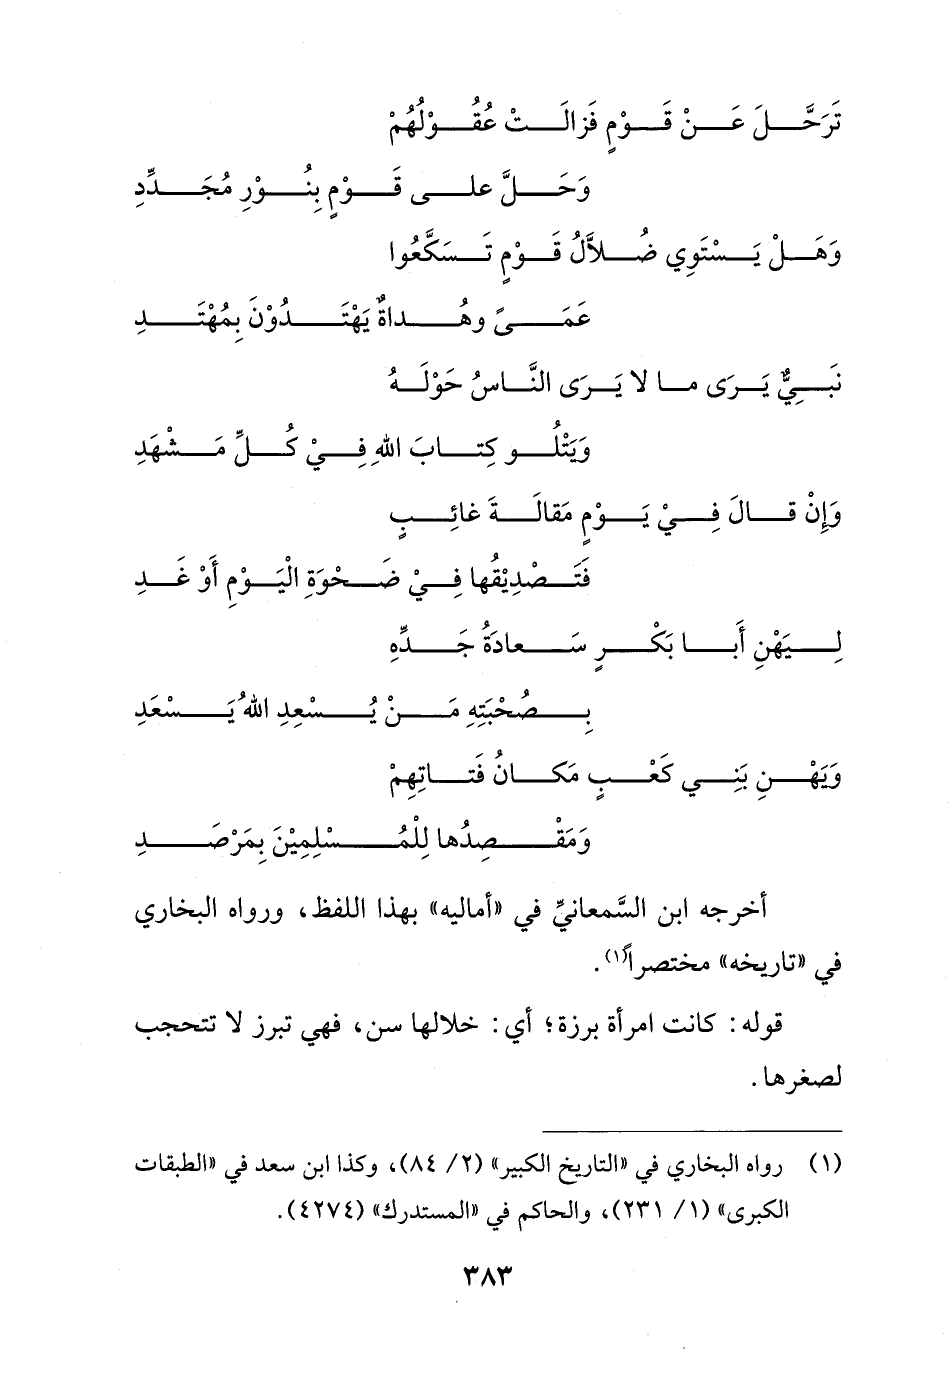 تَرَحَّلَ عَنْ قَوْمٍ فَزالَتْ عُقُوْلُهُمْ
وَحَلَّ على قَوْمٍ بِنُوْرِ مُجَدِّدِ
وَهَلْ يَسْتَوِي ضُلاَّلُ قَوْمٍ تَسَكَّعُوا
عَمَىً وهُداةٌ يَهْتَدُوْنَ بِمُهْتَدِ
نَبِيٌّ يَرَى ما لا يَرَى النَّاسُ حَوْلَهُ
وَيَتْلُو كِتابَ اللهِ فِيْ كُلِّ مَشْهَدِ
وَإِنْ قالَ فِيْ يَوْمٍ مَقالَةَ غائِبٍ
فَتَصْدِيْقُها فِيْ ضَحْوَةِ الْيَوْمِ أَوْ غَدِ
لِيَهْنِ أَبا بَكْرٍ سَعادَةُ جَدِّهِ
بِصُحْبَتِهِ مَنْ يُسْعِدِ اللهُ يَسْعَدِ
وَيَهْنِ بَنِي كَعْبٍ مَكانُ فَتاتِهِمْ
وَمَقْصِدُها لِلْمُسْلِمِيْنَ بِمَرْصَدِ
أخرجه ابن السَّمعانيِّ في «أماليه» بهذا اللفظ، ورواه البخاري
في «تاريخه» مختصراً(١).
قوله: كانت امرأة برزة؛ أي: خلالها سن، فهي تبرز لا تتحجب
لصغرها.
(١) رواه البخاري في «التاريخ الكبير» (٢/ ٨٤)، وكذا ابن سعد في «الطبقات
الكبرى» (١/ ٢٣١)، والحاكم في «المستدرك» (٤٢٧٤).
٣٨٣